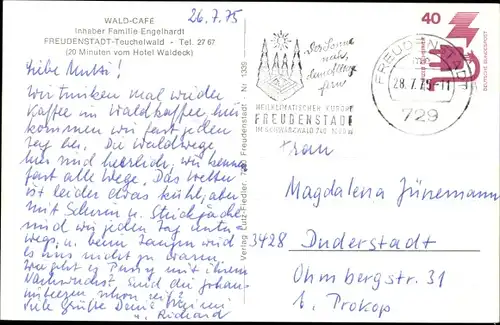 WALD-CAFÉ
Inhaber Familie Engelhardt
FREUDENSTADT-Teuchelwald - Tel. 27 67
(20 Minuten vom Hotel Waldeck)
26.7.75
Liebe Mutti!
Wir trinken mal wieder
Kaffee im Waldkaffee, hier
kommen wir fast jeden
Tag her. Die Waldwege
hier sind herrlich, wir kennen
fast alle Wege. Das Wetter
ist leider etwas kühl, aber
mit Schirm u. Strickjacke
sind wir jeden Tag unter-
wegs, u. beim
es uns nicht zu warm.
Wie geht es mit ihrem
Nachwuchs? Sind die Johan-
nisbeeren schon reif?
Viele Grüße Deine
u. Richard
Verlag Lutz-Fiedler, 729 Freudenstadt Nr 1339
Der Sonne
nah,
dem Alltag
fern
HEILKLIMATISCHER KURORT
FREUDENSTADT
IM SCHWARZWALD 740 M
FREUDENSTADT
28.7.75-11
729
40
DEUTSCHE BUNDESPOST
Frau
Magdalena Jünemann
3428 Duderstadt
Ohmbergstr. 31
b. Prokop